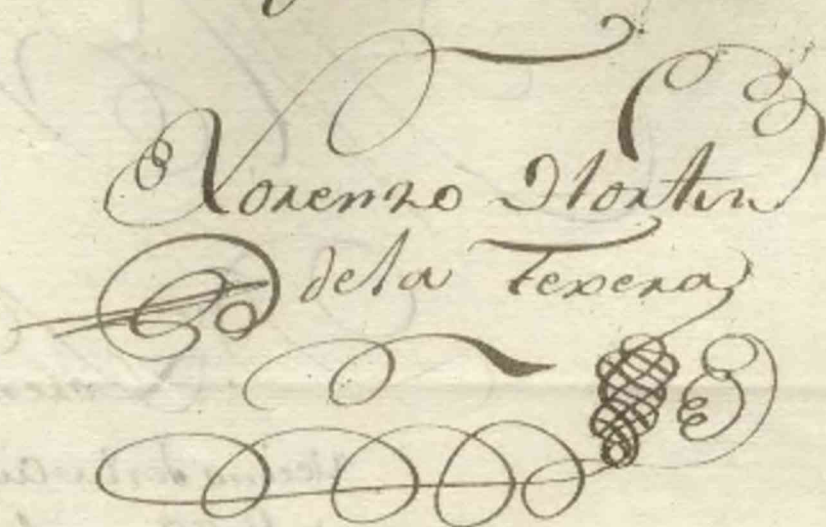 Lorenzo Martin
de la Texera